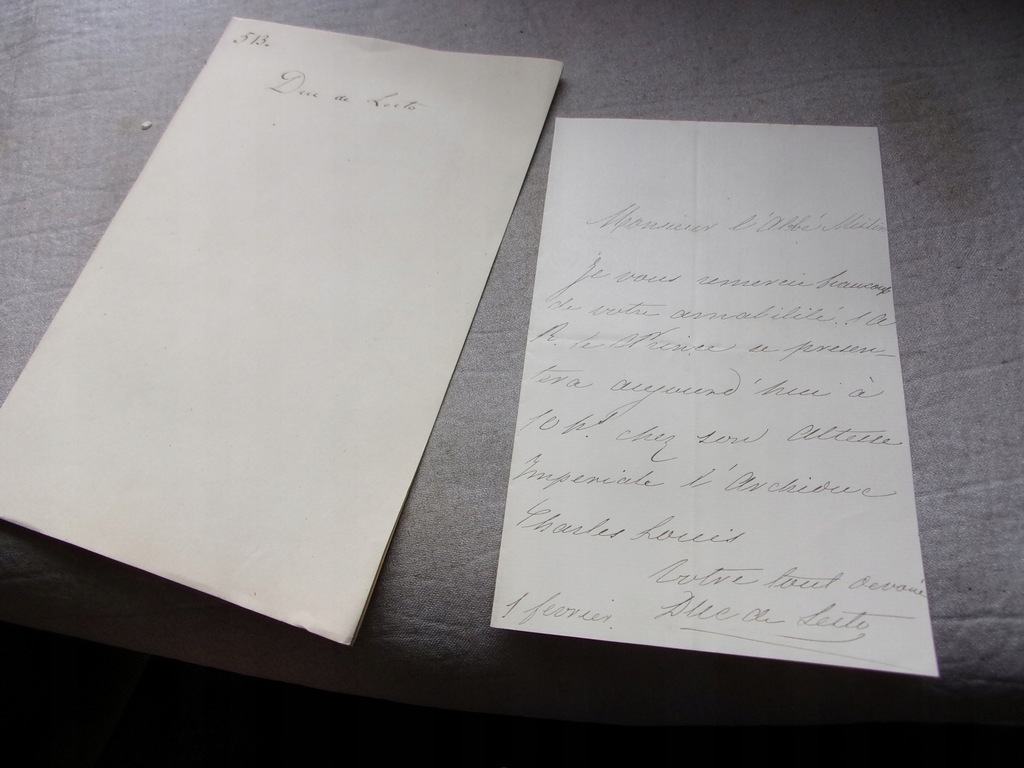 513.
Duc de Sesto
Monsieur l'Abbé Mislin
Je vous remercie beaucoup
de votre amabilité. S A
R. le Prince se presen-
tera aujourd'hui à
10 h. chez son Altesse
Imperiale l'Archiduc
Charles Louis
Votre tout devoué
1 fevrier. Duc de Sesto